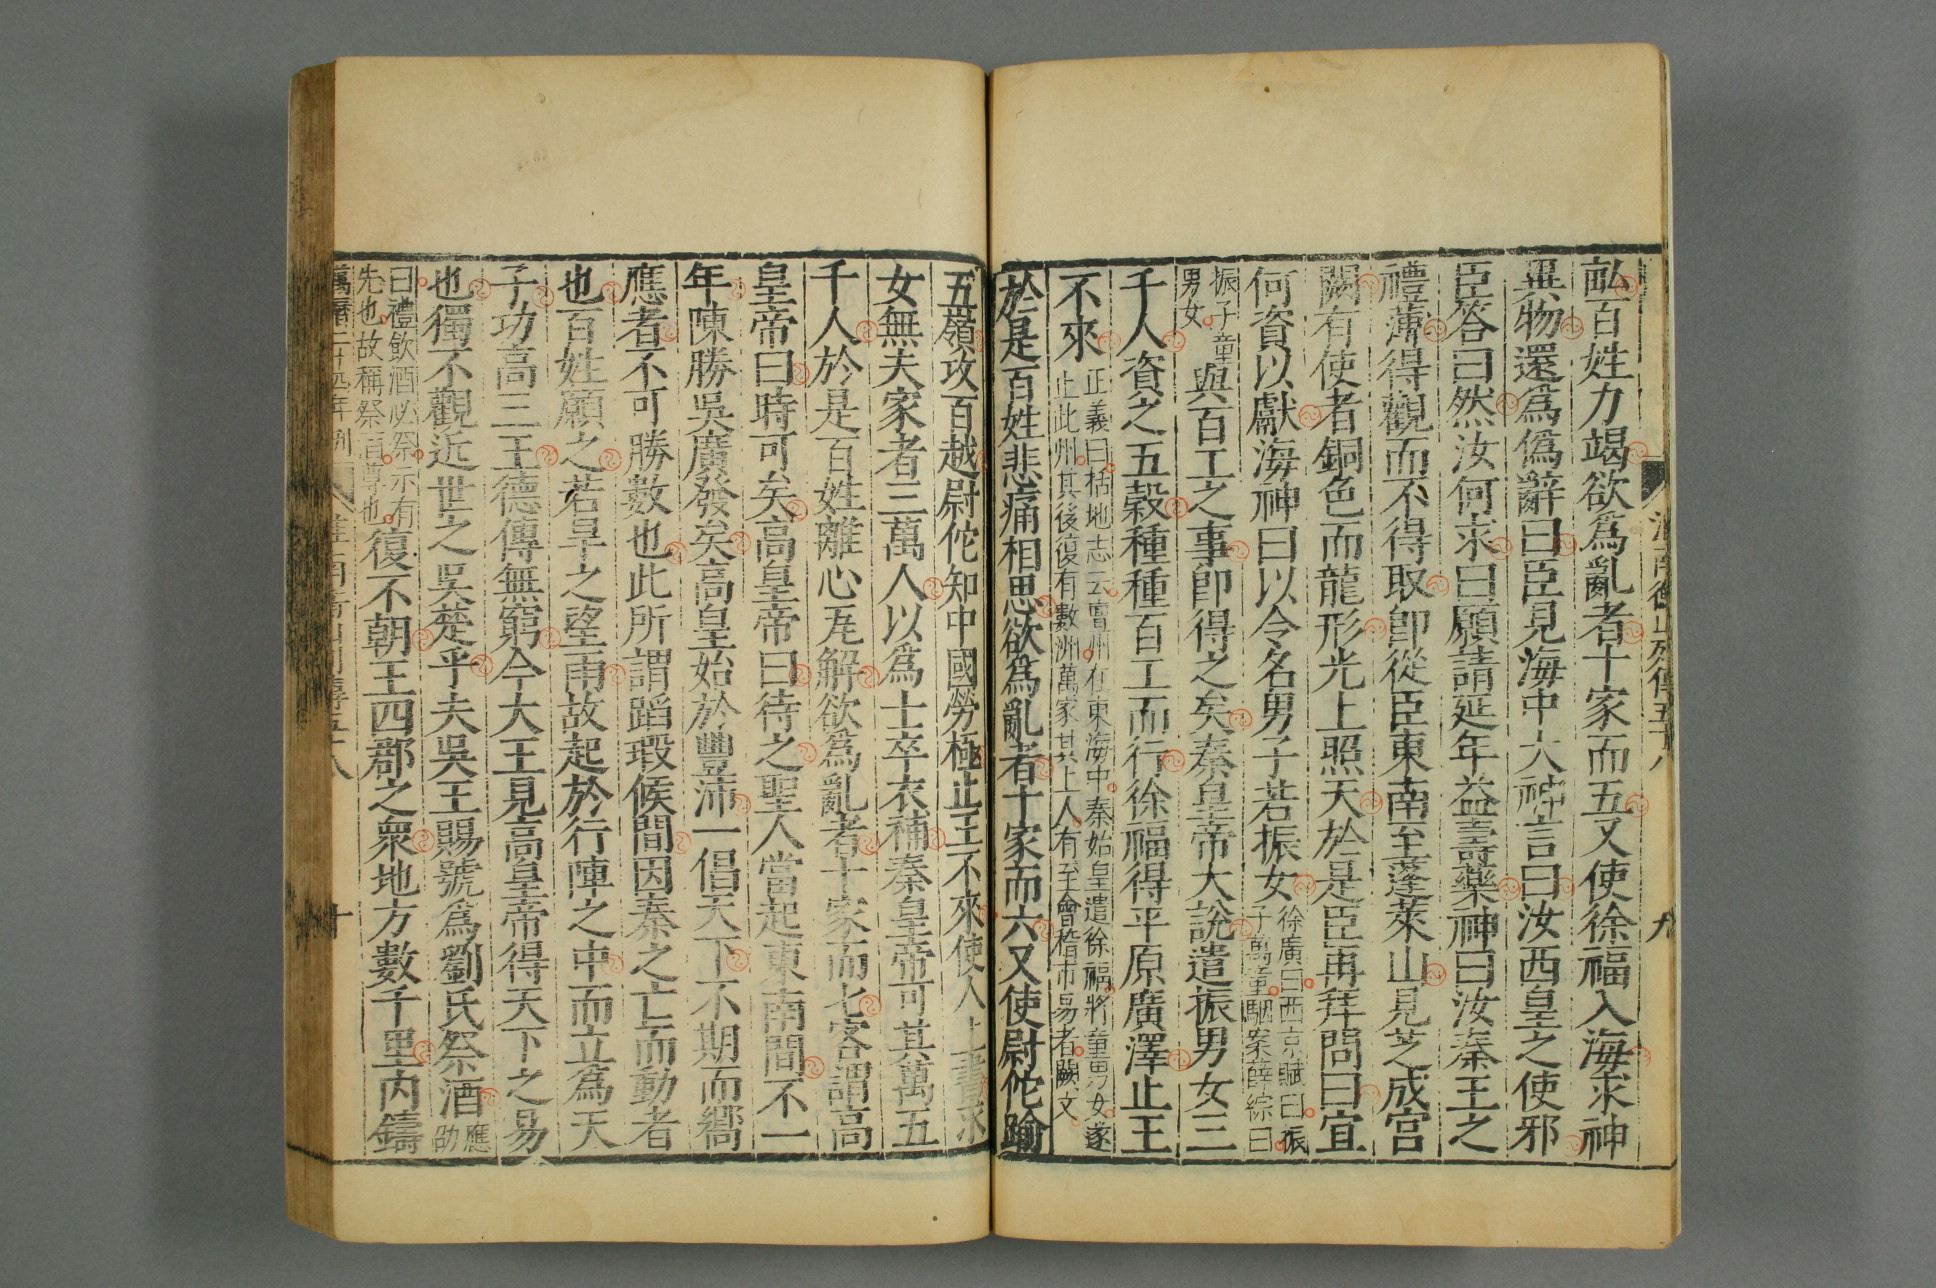 淮南衡山列傳五十八 九
畝百姓力竭欲爲亂者十家而五又使徐福入海求神
異物還爲僞辭曰臣見海中大神言曰汝西皇之使邪
臣答曰然汝何求曰願請延年益壽藥神曰汝秦王之
禮薄得觀而不得取卽從臣東南至蓬萊山見芝成宮
闕有使者銅色而龍形光上照天於是臣再拜問曰宜
何資以獻海神曰以令名男子若振女徐廣曰西京賦曰振
子萬童駰案薛綜曰
振子童
男女與百工之事卽得之矣秦皇帝大說遣振男女三
千人資之五穀種種百工而行徐福得平原廣澤止王
不來正義曰括地志云亶州在東海中秦始皇遣徐福將童男女遂
止此州其後復有數洲萬家其上人有至會稽市易者闕文
於是百姓悲痛相思欲爲亂者十家而六又使尉佗踰
五嶺攻百越尉佗知中國勞極止王不來使人上書求
女無夫家者三萬人以爲士卒衣補秦皇帝可其萬五
千人於是百姓離心瓦解欲爲亂者十家而七客謂高
皇帝曰時可矣高皇帝曰待之聖人當起東南間不一
年陳勝吳廣發矣高皇始於豐沛一倡天下不期而嚮
應者不可勝數也此所謂蹈瑕候間因秦之亡而動者
也百姓願之若旱之望雨故起於行陣之中而立爲天
子功高三王德傳無窮今大王見高皇帝得天下之易
也獨不觀近世之吳楚乎夫吳王賜號爲劉氏祭酒應
劭
曰禮飲酒必祭示有
先也故稱祭酒尊也復不朝王四郡之衆地方數千里內鑄
萬曆二十四年刊 淮南衡山列傳五十八 十